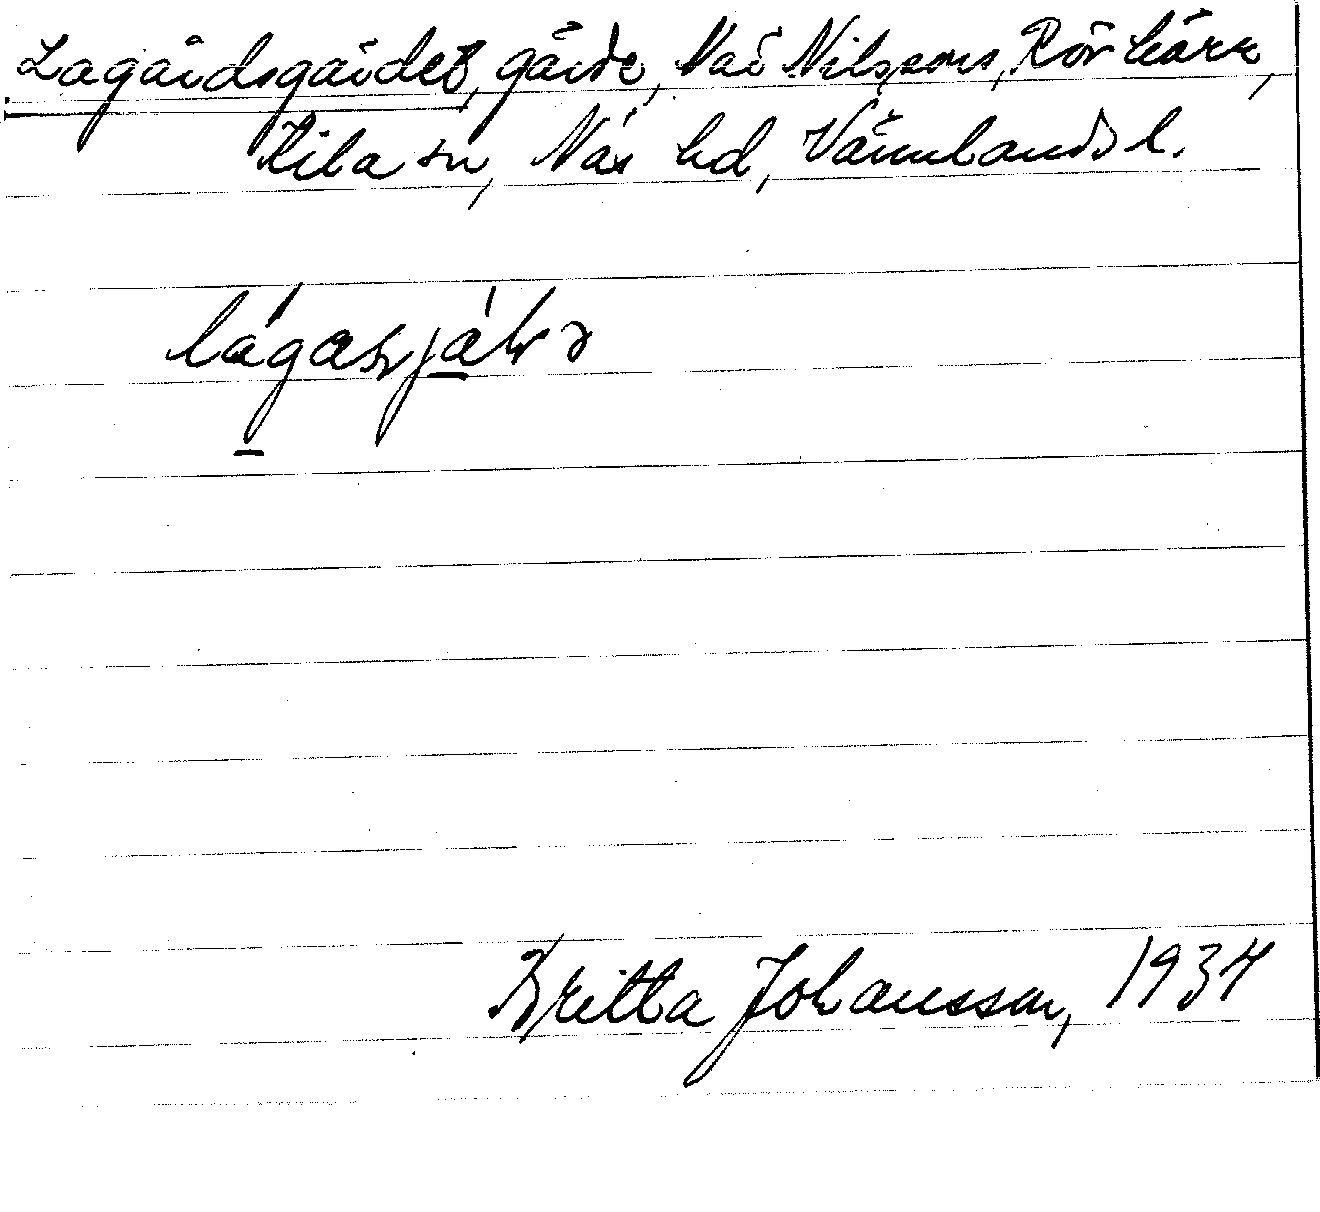 Lagårdsgärdet, gärde, Nils Nilssons, Rörkärr,
Kila sn, Näs hd, Värmlands l.
Britta Johansson, 1934